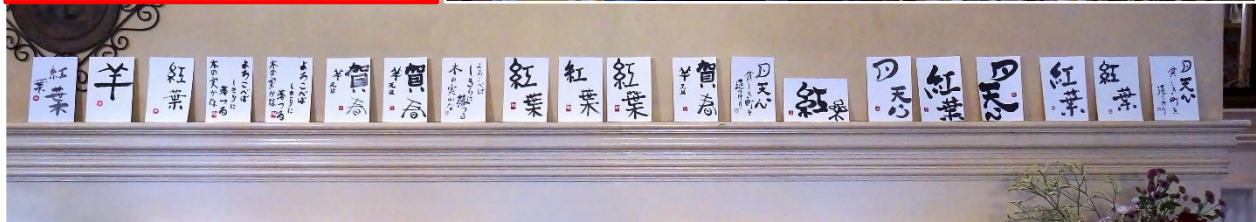 紅葉
羊
紅葉
よろこべば
しきりに
落つる
木の実かな
よろこべば
しきりに
落つる
木の実かな
賀春
羊 元旦
賀春
羊 元旦
よろこべば
しきりに
落つる
木の実かな
紅葉
紅葉
紅葉
賀春
羊 元旦
月天心
貧しき町を
通りけり
紅葉
月天心
紅葉
月天心
紅葉
紅葉
月天心
貧しき町を
通りけり